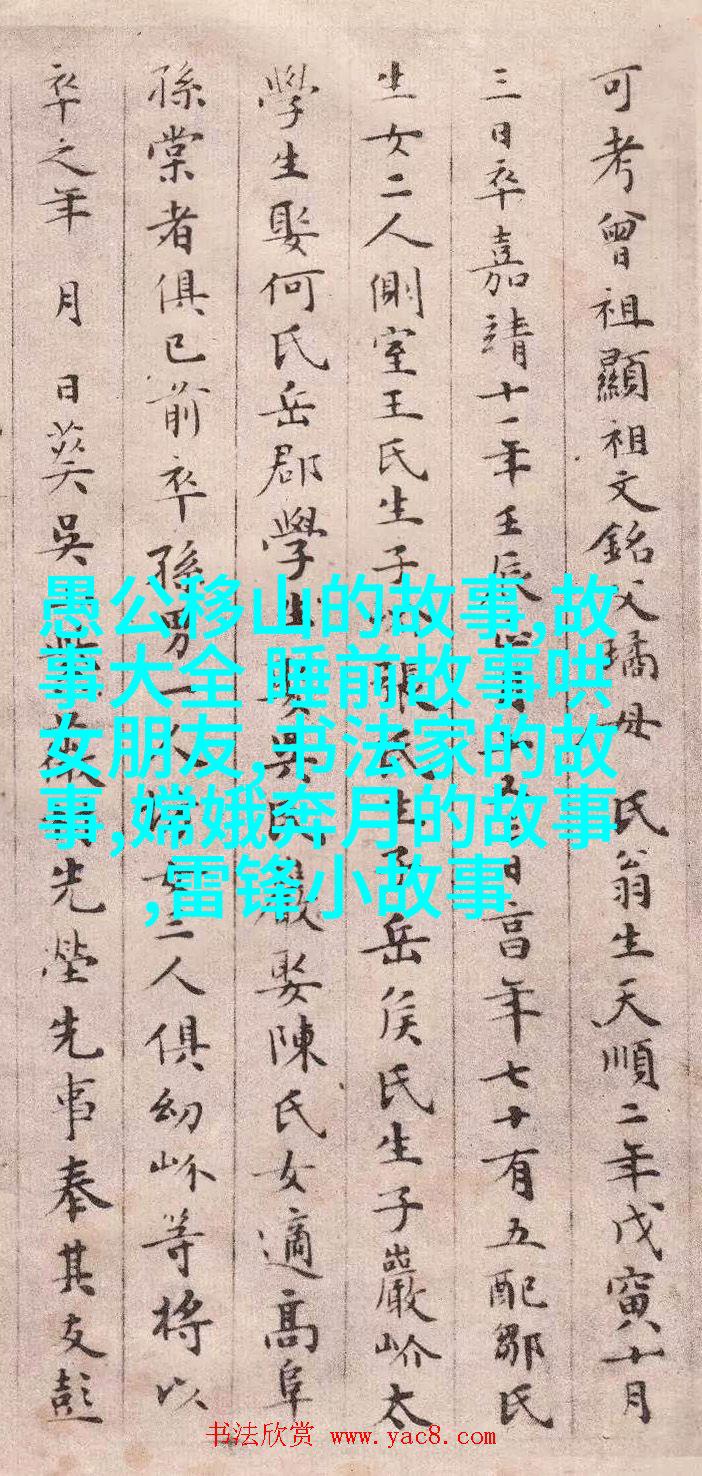 可考曾祖顯祖文銘父璚母 氏翁生天順二年戊寅十月
三日卒嘉靖十一年壬辰 日享年七十有五配鄒氏
生女二人側室王氏生子 張氏生子岳侯氏生子巖岕太
學生娶何氏岳郡學生娶吳氏巖娶陳氏女適高阜
孫棠者俱已前卒孫男一人 女二人俱幼岕等將以
卒之年 月 日葬吳 先塋先事奉其友彭
愚公移山的故事,故
事大全 睡前故事哄
女朋友,书法家的故
事,嫦娥奔月的故事
,雷锋小故事
书法欣赏 www.yac8.com